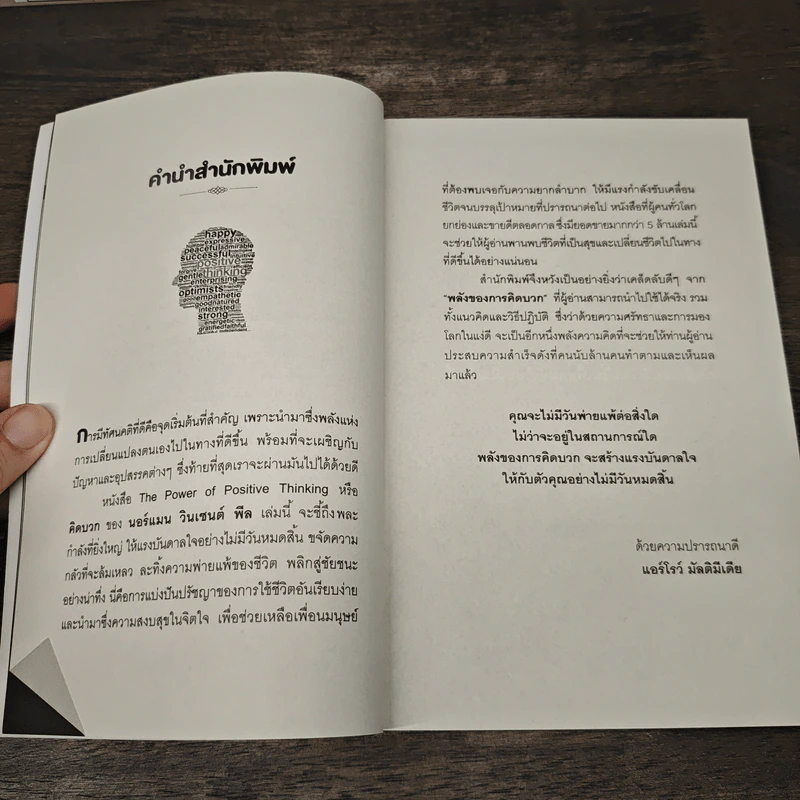 คำนำสำนักพิมพ์
happy
expressive
peaceful admirable
successful
positive
gentle thinking
enterprising
optimists
empathetic
goodnatured
interested
strong
energetic
gratified faithful
การมีทัศนคติที่ดีคือจุดเริ่มต้นที่สำคัญ เพราะนำมาซึ่งพลังแห่ง
การเปลี่ยนแปลงตนเองไปในทางที่ดีขึ้น พร้อมที่จะเผชิญกับ
ปัญหาและอุปสรรคต่างๆ ซึ่งท้ายที่สุดเราจะผ่านมันไปได้ด้วยดี
หนังสือ The Power of Positive Thinking หรือ
คิดบวก ของ นอร์แมน วินเซนต์ พีล เล่มนี้ จะชี้ถึงพละ
กำลังที่ยิ่งใหญ่ ให้แรงบันดาลใจอย่างไม่มีวันหมดสิ้น ขจัดความ
กลัวที่จะล้มเหลว ละทิ้งความพ่ายแพ้ของชีวิต พลิกสู่ชัยชนะ
อย่างน่าทึ่ง นี่คือการแบ่งปันปรัชญาของการใช้ชีวิตอันเรียบง่าย
และนำมาซึ่งความสงบสุขในจิตใจ เพื่อช่วยเหลือเพื่อนมนุษย์
ที่ต้องพบเจอกับความยากลำบาก ให้มีแรงกำลังขับเคลื่อน
ชีวิตจนบรรลุเป้าหมายที่ปรารถนาต่อไป หนังสือที่ผู้คนทั่วโลก
ยกย่องและขายดีตลอดกาล ซึ่งมียอดขายมากกว่า 5 ล้านเล่มนี้
จะช่วยให้ผู้อ่านพานพบชีวิตที่เป็นสุขและเปลี่ยนชีวิตไปในทาง
ที่ดีขึ้นได้อย่างแน่นอน
สำนักพิมพ์จึงหวังเป็นอย่างยิ่งว่าเคล็ดลับดีๆ จาก
"พลังของการคิดบวก" ที่ผู้อ่านสามารถนำไปใช้ได้จริง รวม
ทั้งแนวคิดและวิธีปฏิบัติ ซึ่งว่าด้วยความศรัทธาและการมอง
โลกในแง่ดี จะเป็นอีกหนึ่งพลังความคิดที่จะช่วยให้ท่านผู้อ่าน
ประสบความสำเร็จดังที่คนนับล้านคนทำตามและเห็นผล
มาแล้ว
คุณจะไม่มีวันพ่ายแพ้ต่อสิ่งใด
ไม่ว่าจะอยู่ในสถานการณ์ใด
พลังของการคิดบวก จะสร้างแรงบันดาลใจ
ให้กับตัวคุณอย่างไม่มีวันหมดสิ้น
ด้วยความปรารถนาดี
แอร์โรว์ มัลติมีเดีย